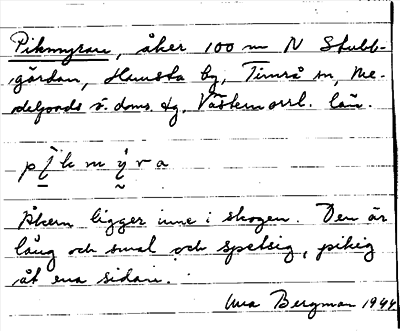 Pikmyran, åker 100 m N Stubb-
gårdan, Hamsta by, Timrå sn, Me-
delpads ö. doms. tg. Västernorrl. län.
p i k m y r a
Åkern ligger inne i skogen. Den är
lång och smal och spetsig, pikig
åt ena sidan.
Bergman 1944